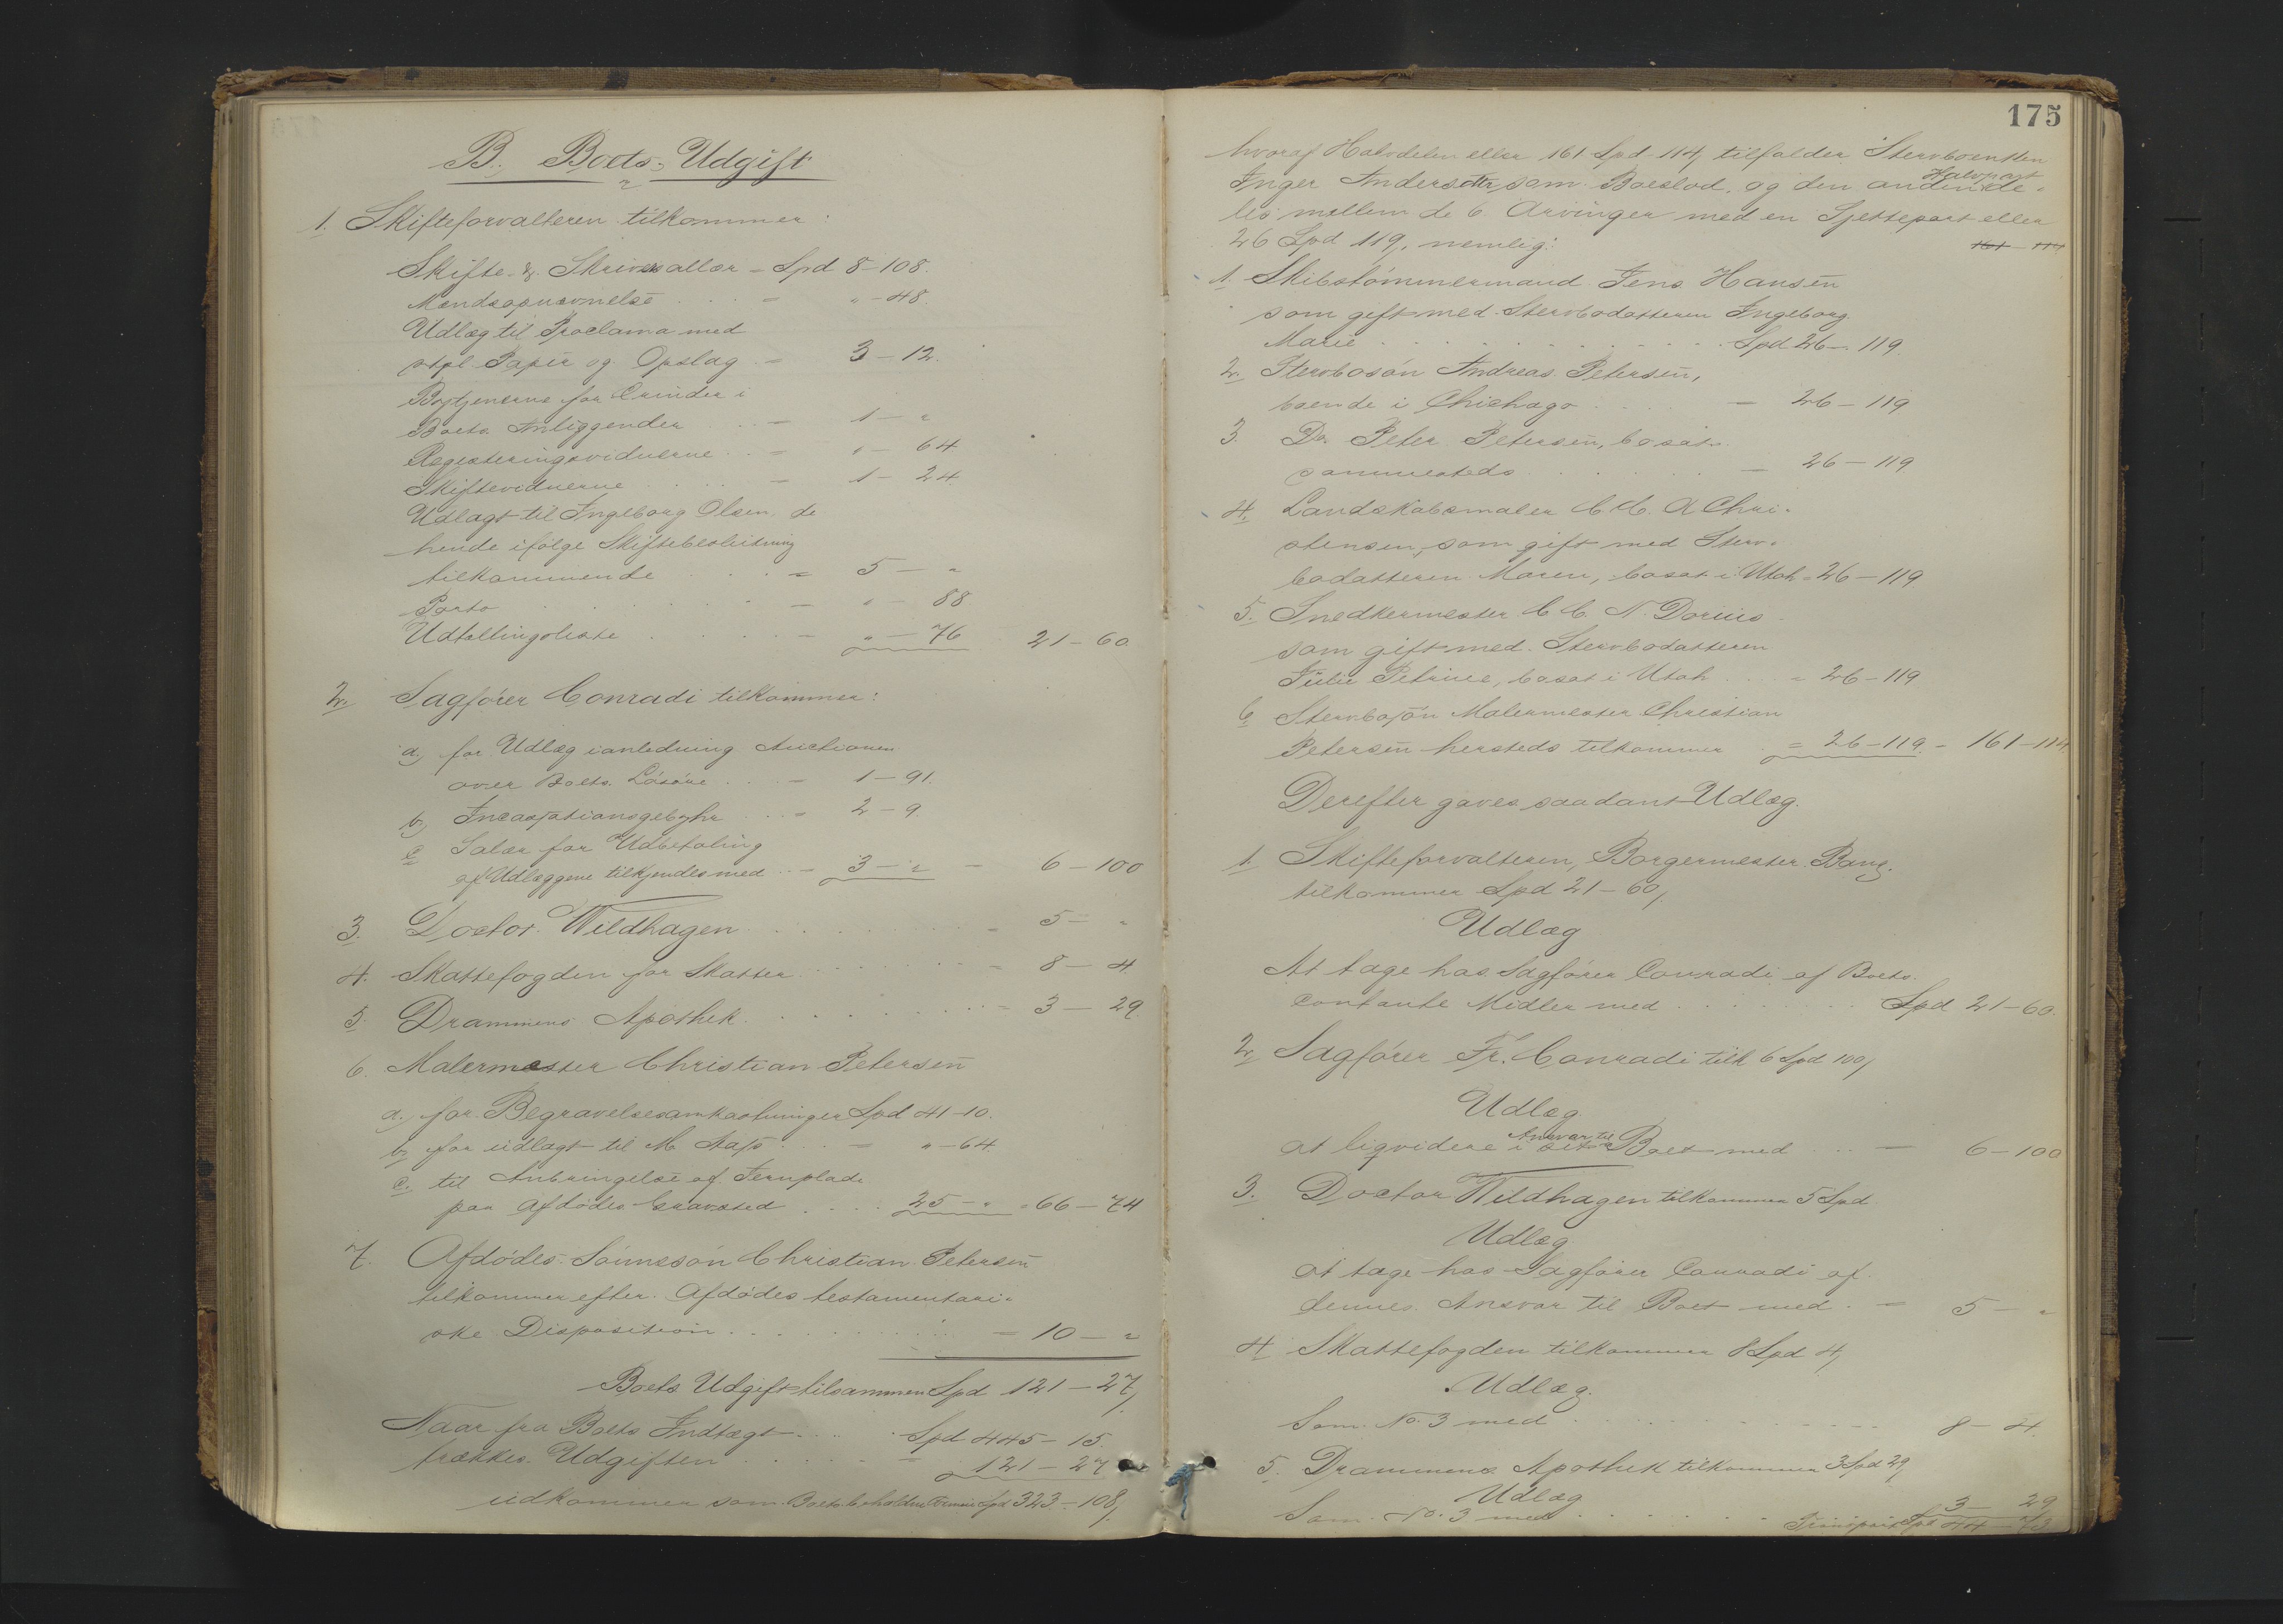 B. Boets Udgift
1. Skifteforvalteren tilkommer:
Skifte- & Skriversallær = Spd 8–108.
Mandsopnævnelse . . . = " – 48.
Udlæg til Proclama med
stpl. Papir og Opslag = 3 – 12.
Bytjenerne for Erinder i
Boets Anliggender . . = 1 – "
Registeringsvidnerne . . = " – 64
Skiftevidnerne . . . . = 1 – 24
Udlagt til Ingeborg Olsen, de
hende ifølge Skiftebeslutning
tilkommende . . . = 5 – "
Porto . . . . . . = " – 88
Udtællingsliste . . . . = " – 76 21 – 60
2. Sagfører Conradi tilkommer:
a, for Udlæg ianledning Auctionen
over Boets Løsøre . . . = 1 – 91.
b, Incassationsgebyhr . . . = 2 – 9.
c Salær for Udbetaling
af Udlæggene tilkjendes med . . = 3 – " = 6 – 100
3. Doctor Wildhagen . . . . . . = 5 – "
4. Skattefogden for Skatter . . . . . = 8 – 4
5. Drammens Apothek . . . . . . = 3 – 29
6. Malermester Christian Petersen
a. for Begravelsesomkostninger Spd 41–10.
b, for udlagt til M. Aass . . . = " – 64
c. til Anbringelse af Jernplade
paa Afdødes Gravsted . . . . 25 – " = 66 – 74
7. Afdødes Sønnesøn Christian Petersen
tilkommer efter Afdødes testamentari-
ske Disposition . . . . . . . = 10 – "
Boets Udgift tilsammen Spd 121 – 27,
Naar fra Boets Indtægt . . . . Spd 445 – 15.
trækkes Udgiften . . . . . = 121 – 27
udkommer som Boets beholdne Formue Spd 323 – 108,
175
hvoraf Halvdelen eller 161 Spd 114, tilfalder Stervboenken
Halvpart
Inger Andersdtr som Boeslod, og den anden de-
les mellem de 6 Arvinger med en Sjettepart eller
26 Spd 119, nemlig: 161 – 114
1. Skibstømmermand Jens Hansen
som gift med Stervbodatteren Ingeborg
Marie . . . . . . . . . . . Spd 26 – 119.
2. Stervbosøn Andreas Petersen,
boende i Chichago . . . . = 26 – 119
3. Do. Peter Petersen, bosat
sammesteds . . . . . . = 26 – 119
4. Landskabsmaler C. C. A Chri-
stensen, som gift med Sterv-
bodatteren Maren, bosat i Utah = 26 – 119
5. Snedkermester C. C. N. Dorius
som gift med Stervbodatteren
Julie Petrine, bosat i Utah . = 26 – 119
6 Stervbosøn Malermester Christian
Petersen hersteds tilkommer = 26 – 119. = 161 – 114
Derefter gaves saadant Udlæg.
1. Skifteforvalteren, Borgermester Bang
tilkommer Spd 21 – 60,
Udlæg
At tage hos Sagfører Conradi af Boets
contante Midler med . . . . . . Spd 21 – 60.
2, Sagfører Fr. Conradi tilk 6 Spd 100,
Udlæg
Ansvar til
at liqvidere i Boet med . . . = 6 – 100
3. Doctor Wildhagen tilkommer 5 Spd
Udlæg
at tage hos Sagfører Conradi af
dennes Ansvar til Boet med . = 5 – "
4 Skattefogden tilkommer 8 Spd 4,
Udlæg.
Som No. 3 med . . . . . . . . . 8 – 4.
5. Drammens Apothek tilkommer 3 Spd 29,
Udlæg
Som No. 3 med . . . . . . . . 3 – 29
Transport Spd 44 – 73